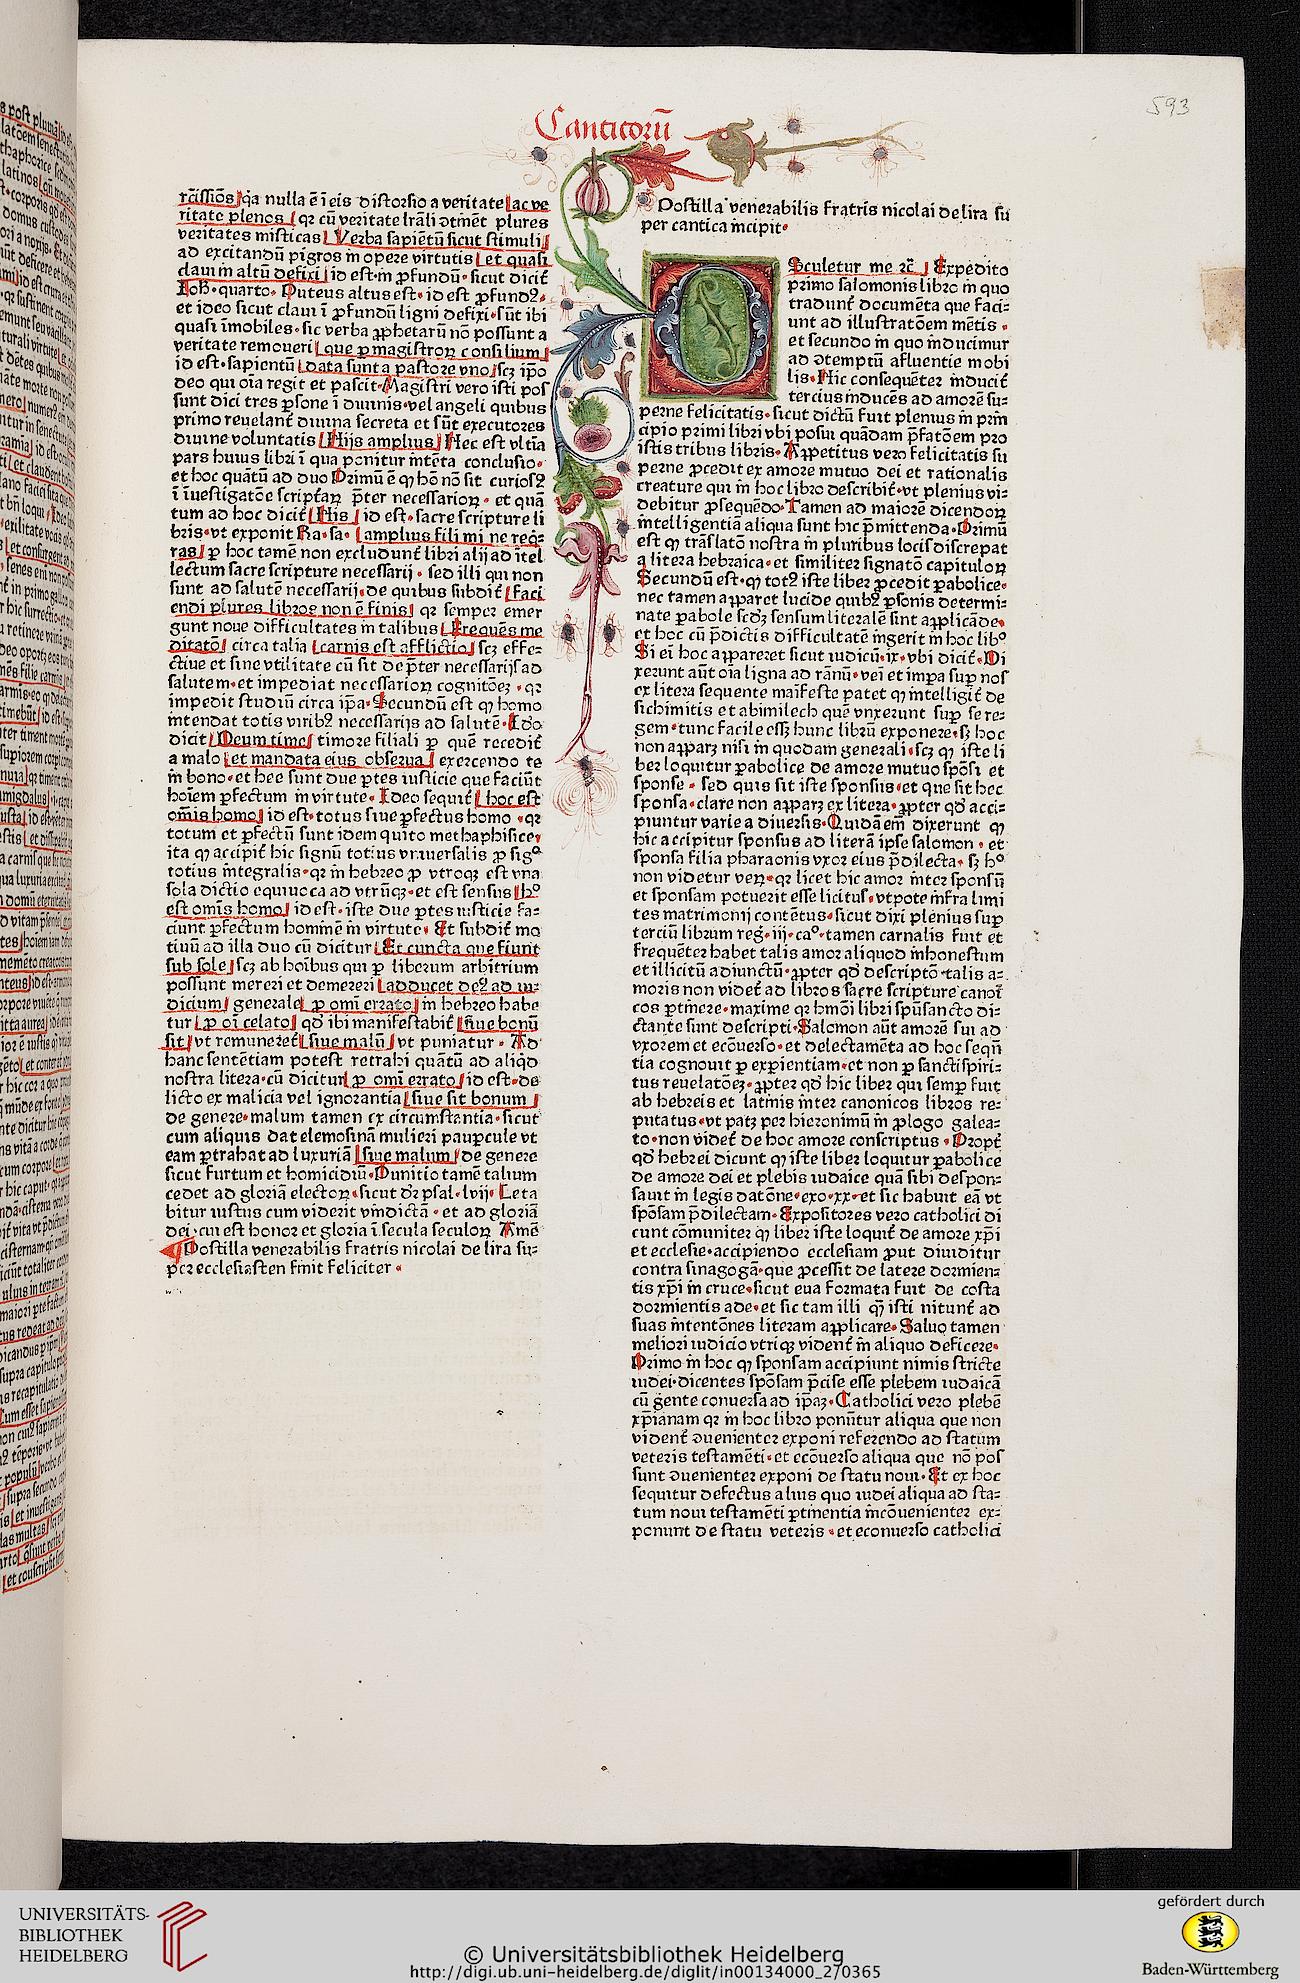 593
Canticorū
rc̄issiōs q̇a nulla ē ī eis distorsio a veritate ac ve
ritate plenos qꝛ cū veritate lr̄ali ↄtinēt plures
veritates misticas Verba sapiētū sicut stimuli
ad excitandū pigros in opere virtutis et quasi
claui in altū defixi id est·in ꝓfundū· sicut dicit̄
Iob·quarto· Puteus altus est· id est ꝓfundꝰ·
et ideo sicut claui ī ꝓfundū ligni defixi·sūt ibi
quasi īmobiles· sic verba ꝓphetarū nō possunt a
veritate remoueri que ꝑ magistroꝝ consilium
id est·sapientū data sunt a pastore vno scꝫ ip̄o
deo qui oīa regit et pascit·Magistri vero isti pos
sunt dici tres ꝑsone ī diuinis·vel angeli quibus
primo reuelant̄ diuina secreta et sūt executores
diuine voluntatis Hijs amplius Hec est vltīa
pars huius libri ī qua ponitur intēta conclusio·
et hoc quātū ad duo Primū ē ꝙ hō nō sit curiosꝰ
ī īuestigatōe scriptaꝝ p̄ter necessarioꝝ· et quā
tum ad hoc dicit̄ His id est· sacre scripture li
bris·vt exponit Ra·sa· amplius fili mi ne req̇
ras ꝑ hoc tamē non excludunt̄ libri alij ad ītel
lectum sacre scripture necessarij · sed illi qui non
sunt ad salutē necessarij·de quibus subdit̄ faci
endi plures libros non ē finis qꝛ semper emer
gunt noue difficultates in talibus Frequēs me
ditatō circa talia carnis est afflictio scꝫ effe⸗
ctiue et sine vtilitate cū sit de p̄ter necessarijs ad
salutem·et impediat necessarioꝝ cognitōeꝫ · qꝛ
impedit studiū circa ip̄a·Secundū est ꝙ homo
intendat totis viribꝰ necessarijs ad salutē·Ido
dicit Deum time timore filiali ꝑ quē recedit̄
a malo et mandata eius obserua exercendo te
in bono·et hee sunt due ꝑtes iusticie que faciūt
hoīem ꝑfectum in virtute· Ideo sequit̄ hoc est
om̄is homo id est·totus siue ꝑfectus homo ·qꝛ
totum et ꝑfectū sunt idem quīto methaphisice·
ita ꝙ accipit̄ hic signū totius vniuersalis ꝓ sigº
totius integralis·qꝛ in hebreo ꝓ vtroqꝫ est vna
sola dictio equiuoca ad vtrūqꝫ·et est sensus hº
est om̄is homo id est·iste due ꝑtes iusticie fa⸗
ciunt ꝑfectum hominē in virtute· Et subdit̄ mo
tiuū ad illa duo cū dicitur Et cuncta que fiunt
sub sole scꝫ ab hoībus qui ꝑ liberum arbitrium
possunt mereri et demereri adducet deꝰ ad iu⸗
dicium generale ꝓ om̄i errato in hebreo habe
tur ꝓ oī celato qd̄ ibi manifestabit̄ siue bonū
sit vt remuneret̄ siue malū vt puniatur · Ad
hanc sentētiam potest retrahi quātū ad aliqd̄
nostra litera·cū dicitur ꝓ om̄i errato id est·de
licto ex malicia vel ignorantia siue sit bonum
de genere·malum tamen ex circumstantia·sicut
cum aliquis dat elemosinā mulieri pauꝑcule vt
eam ꝑtrahat ad luxuriā siue malum de genere
sicut furtum et homicidiū·Punitio tamē talium
cedet ad gloriā electoꝝ·sicut dr̄ psal·lvij·Leta
bitur iustus cum viderit vindictā · et ad gloriā
dei·cui est honor et gloria ī secula seculoꝝ Amē
Postilla venerabilis fratris nicolai de lira su⸗
per ecclesiasten finit feliciter ·
Postilla venerabilis fratris nicolai de lira su
per cantica incipit·
Osculetur me ꝛc̄ Expedito
primo salomonis libro in quo
tradunt̄ documēta que faci⸗
unt ad illustratōem mētis ·
et secundo in quo inducimur
ad ↄtemptū afluentie mobi
lis·Hic consequēter inducit̄
tercius inducēs ad amorē su⸗
perne felicitatis·sicut dictū fuit plenius in prin
cipio primi libri vbi posui quādam p̄fatōem pro
istis tribus libris· Appetitus vero felicitatis su
perne ꝓcedit ex amore mutuo dei et rationalis
creature qui in hoc libro describit̄·vt plenius vi⸗
debitur ꝓsequēdo·Tamen ad maiorē dicendoꝝ
intelligentiā aliqua sunt hic p̄mittenda·Primū
est ꝙ trāslatō nostra in pluribus locis discrepat
a litera hebraica·et similiter signatō capituloꝝ
Secundū est·ꝙ totꝰ iste liber ꝓcedit ꝑabolice·
nec tamen apparet lucide quibꝰ ꝑsonis determi⸗
nate ꝑabole scd̄ꝫ sensum literalē sint applicāde·
et hoc cū p̄dictis difficultatē ingerit in hoc libº
Si ei hoc appareret sicut iudicū·ix·vbi dicit̄·Di
xerunt aūt oīa ligna ad rānū·vei et imp̄a sup̄ nos
ex litera sequente maīfeste patet ꝙ intelligit̄ de
sichimitis et abimilech quē vnxerunt suꝑ se re⸗
gem·tunc facile essꝫ hunc librū exponere·sꝫ hoc
non apparꝫ nisi in quodam generali·scꝫ ꝙ iste li
ber loquitur ꝑabolice de amore mutuo spōsi et
sponse · sed quis sit iste sponsus·et que sit hec
sponsa·clare non apparꝫ ex litera·ꝓpter qd̄ acci⸗
piuntur varie a diuersis·Quidā em̄ dixerunt ꝙ
hic accipitur sponsus ad literā ipse salomon · et
sponsa filia pharaonis vxor eius p̄dilecta· sꝫ hº
non videtur veꝝ·qꝛ licet hic amor inter sponsū
et sponsam potuerit esse licitus·vtpote infra limi
tes matrimonij contētus·sicut dixi plenius suꝑ
terciū librum reg·iij·caº·tamen carnalis fuit et
frequēter habet talis amor aliquod inhonestum
et illicitū adiunctū·ꝓpter qd̄ descriptō talis a⸗
moris non videt̄ ad libros sacre scripture canoī
cos ꝑtinere·maxime qꝛ hmōi libri spūsancto di⸗
ctante sunt descripti·Salomon aūt amorē sui ad
vxorem et ecōuerso·et delectamēta ad hoc seqn̄
tia cognouit ꝑ exꝑientiam·et non ꝑ sancti spiri⸗
tus reuelatōeꝫ·ꝓpter qd̄ hic liber qui semꝑ fuit
ab hebreis et latinis inter canonicos libros re⸗
putatus·vt patꝫ per hieronimū in ꝓlogo galea⸗
to·non videt̄ de hoc amore conscriptus · Propt̄
qd̄ hebrei dicunt ꝙ iste liber loquitur ꝑabolice
de amore dei et plebis iudaice quā sibi despon⸗
sauit in legis datōne·exo·xx·et sic habuit eā vt
spōsam p̄dilectam·Expositores vero catholici di
cunt cōmuniter ꝙ liber iste loquit̄ de amore xp̄i
et ecclesie·accipiendo ecclesiam ꝓut diuiditur
contra sinagogā·que ꝓcessit de latere dormien⸗
tis xp̄i in cruce·sicut eua formata fuit de costa
dormientis ade·et sic tam illi qȝ isti nitunt̄ ad
suas intentōnes literam applicare·Saluo tamen
meliori iudicio vtriqꝫ vident̄ in aliquo deficere·
Primo in hoc ꝙ sponsam accipiunt nimis stricte
iudei·dicentes spōsam p̄cise esse plebem iudaicā
cū gente conuersa ad ip̄aꝫ·Catholici vero plebē
xp̄ianam qꝛ in hoc libro ponūtur aliqua que non
vident̄ ↄuenienter exponi referendo ad statum
veteris testamēti·et ecōuerso aliqua que nō pos
sunt ↄuenienter exponi de statu noui·Et ex hoc
sequitur defectus alius quo iudei aliqua ad sta⸗
tum noui testamēti ꝑtinentia incōuenienter ex⸗
ponunt de statu veteris · et econuerso catholici
UNIVERSITÄTS-
BIBLIOTHEK
HEIDELBERG
© Universitätsbibliothek Heidelberg
http://digi.ub.uni-heidelberg.de/diglit/in00134000_270365
gefördert durch
Baden-Württemberg